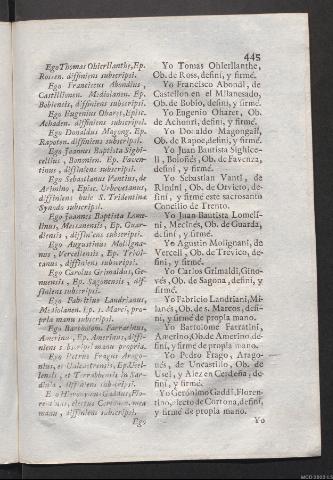 445
Ego Thomas Ohierllanthe, Ep.
Rossen. diffiniens subscripsi.
Ego Franciscus Abondius,
Castillionen. Mediolanen. Ep.
Bobiensis, diffiniens subscripsi.
Ego Eugenius Oharet, Episc.
Achaden. diffiniens subscripsi.
Ego Donaldus Magong. Ep.
Rapoten. diffiniens subscripsi.
Ego Joannes Baptista Sighi-
cellius, Bononien. Ep. Faven-
tinus, diffiniens subscripsi.
Ego Sebastianus Vantius, de
Arimino, Episc. Urbevetanus,
diffiniens huic S. Tridentinæ
Synodo subscripsi.
Ego Joannes Baptista Lome-
llinus, Messanensis, Ep. Guar-
diensis, diffiniens subscripsi.
Ego Augustinus Moligna-
nus, Vercellensis, Ep.
diffiniens subscripsi.
Ego Carolus Grimaldus, Ge-
nuensis, Ep. Sagonensis, dif-
finiens subscripsi.
Ego Fabritius Landrianus,
Mediolanen. Ep. S. Marci, pro-
pria manu subscripsi.
Ego Bartholom. Farratinus,
Amerinus, Ep. Amerinus, diffi-
niens subscripsi manu propria.
Ego Petrus Fragus Arago-
nius, et
lensis, et in Sar-
dinia, diffiniens subscripsi.
Ego Hieronymus Gaddus, Flo-
rentinus, electus mea
manu, diffiniens subscripsi.
Ego
Yo Tomas Ohierllanthe,
Ob. de Ross, defini, y firmé.
Yo Francisco Abondi, de
Castellon en el Milanesado,
Ob. de Bobio, defini, y firmé.
Yo Eugenio Oharet, Ob.
de Achonri, defini, y firmé.
Yo Donaldo Magongail,
Ob. de Rapoe, defini, y firmé.
Yo Juan Bautista Sighice-
li, Boloñés, Ob. de Favenza,
defini, y firmé.
Yo Sebastian Vanti, de
Rimini, Ob. de Orvieto, de-
fini, y firmé este sacrosanto
Concilio de Trento.
Yo Juan Bautista Lomeli-
ni, Mecinés, Ob. de Guarda,
defini, y firmé.
Yo Agustin Molignani, de
Verceli, Ob. de Trevico, de-
fini, y firmé.
Yo Carlos Grimaldi, Gino-
vés, Ob. de Sagona, defini, y
firmé.
Yo Fabricio Landriani, Mi-
lanés, Ob. de s. Marcos, defi-
ni, y firmé de propia mano.
Yo Bartolome Farratini,
Amerino, Ob. de Amerino de-
fini, y firmé de propla mano.
Yo Pedro Frago, Arago-
nés, de Uncastillo, Ob. de
Usel, y Alez en Cerdeña, de-
fini, y firmé.
Yo Gerónimo Gaddi, Floren-
tino, electo de Cortona, defini,
y firmé de propla mano.
Yo